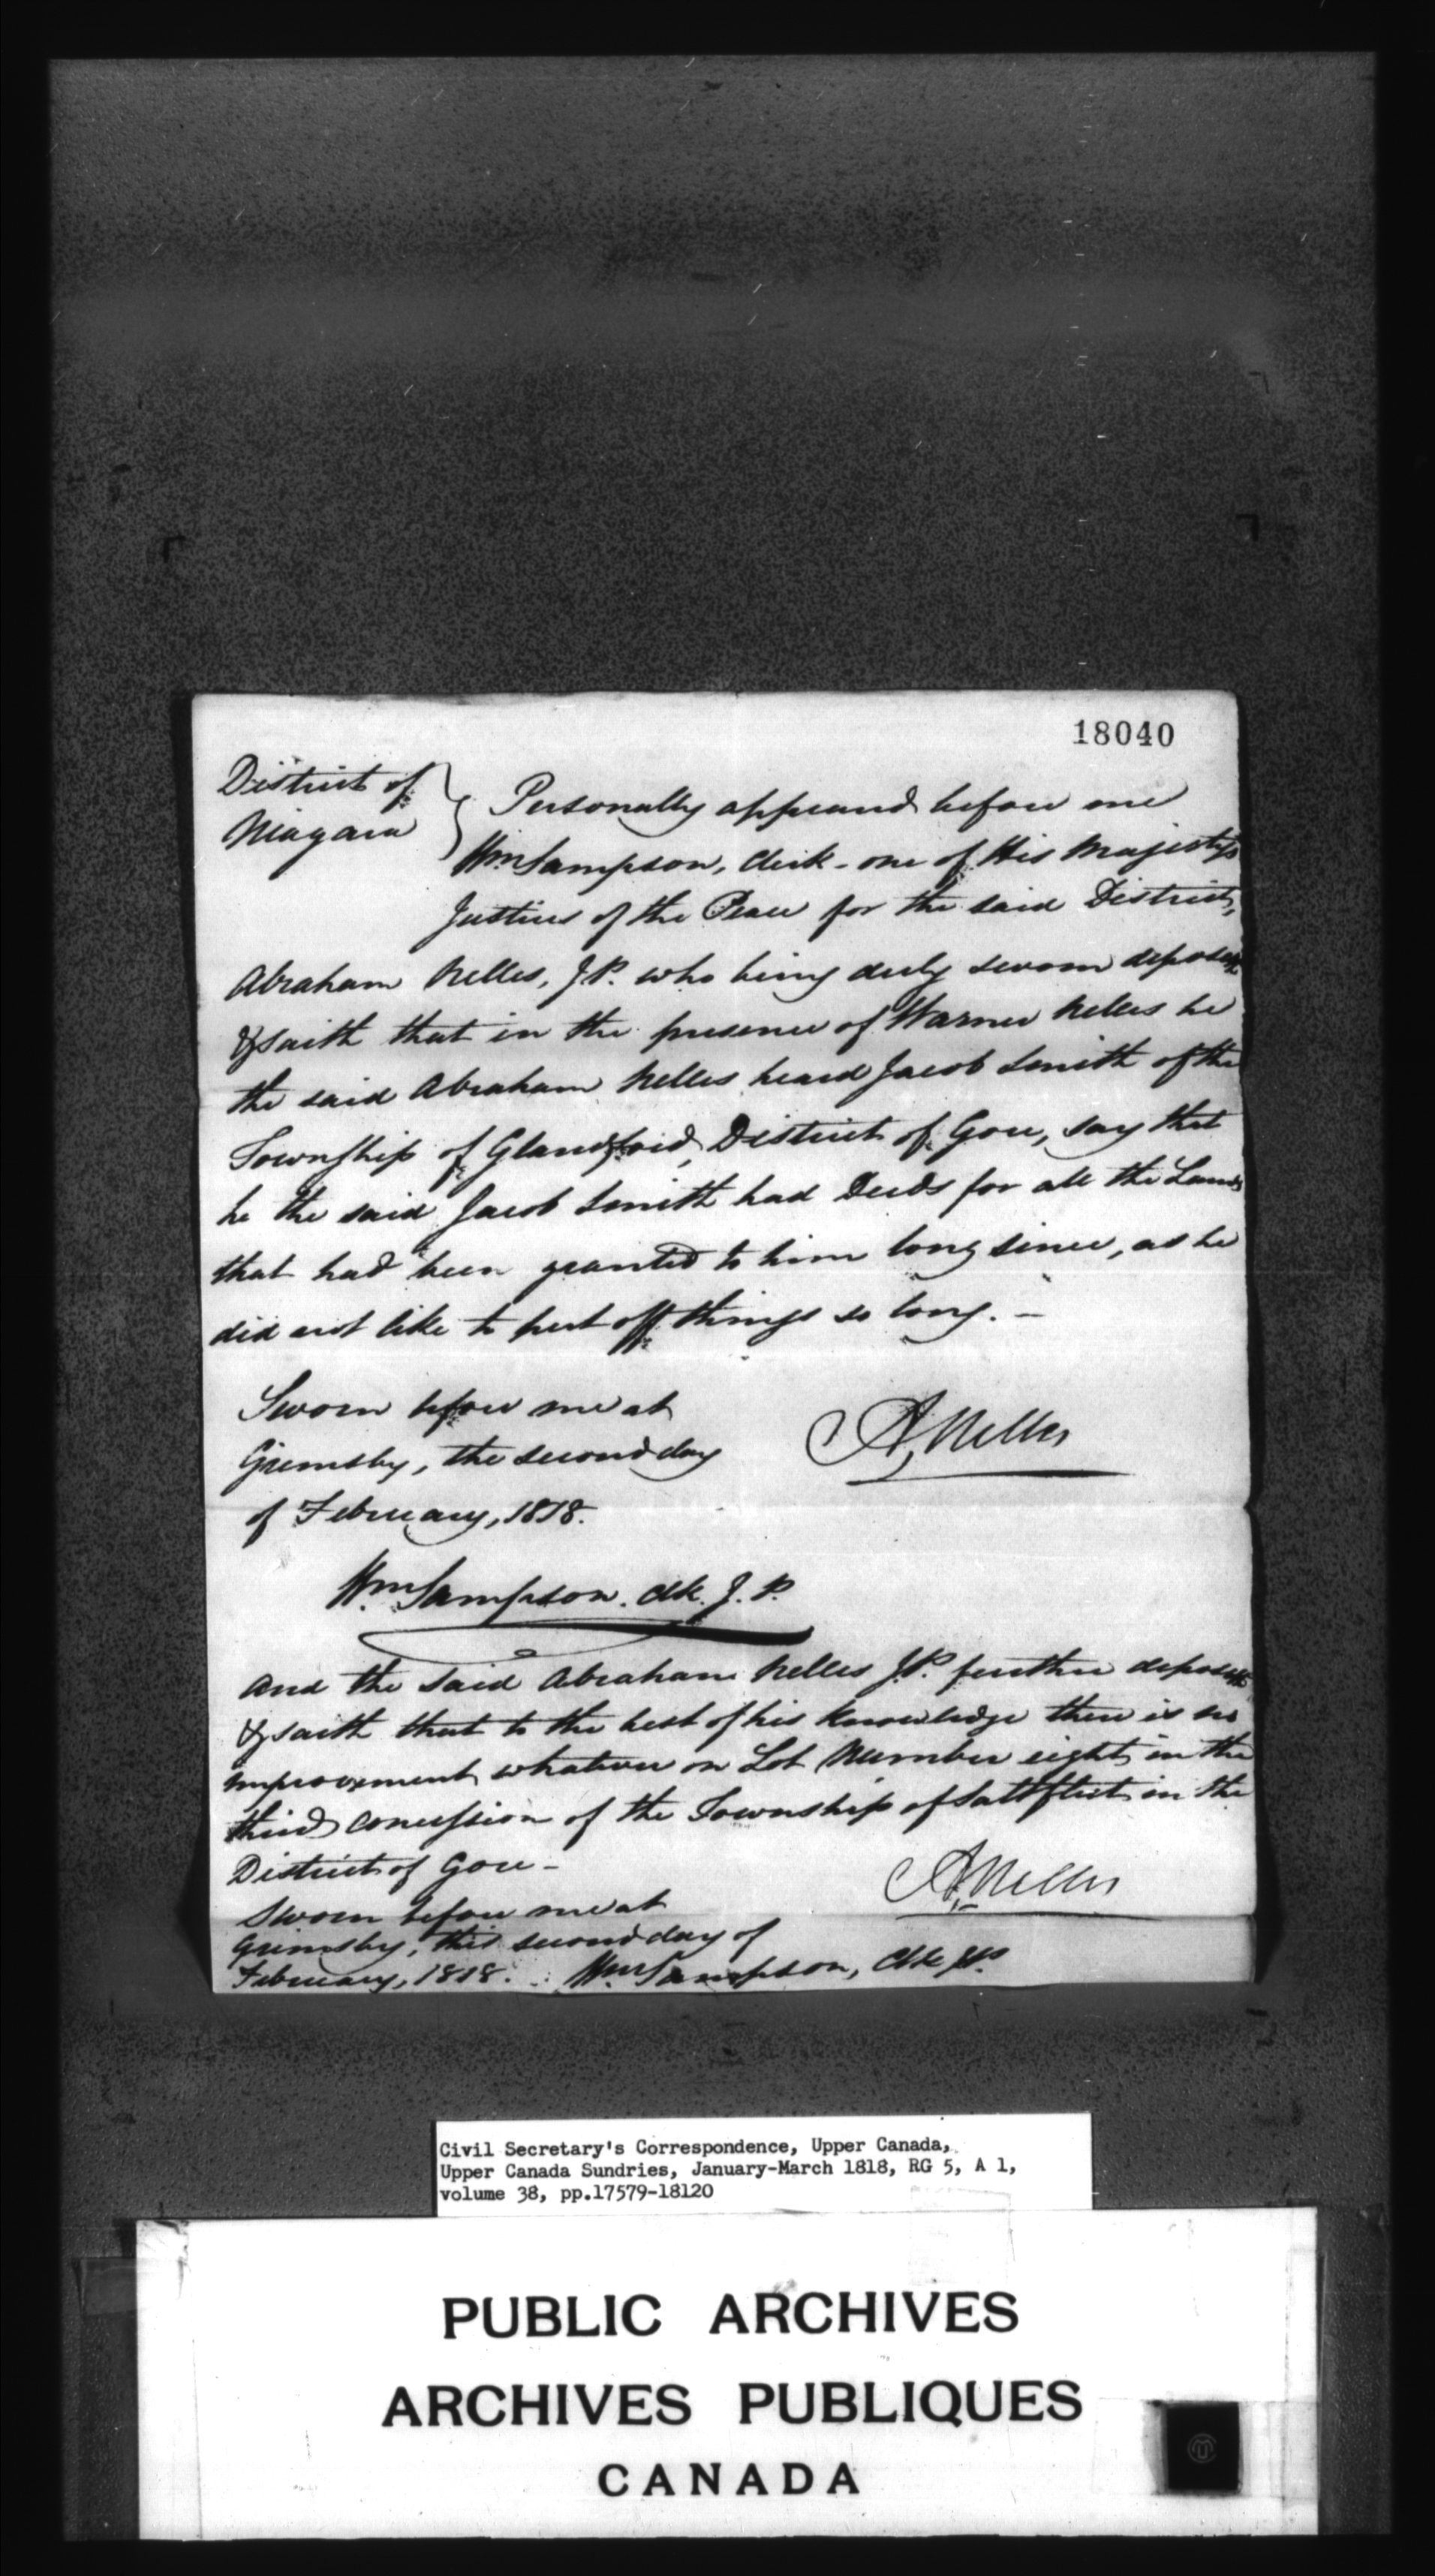 18040
District of
Niagara
Personally appeared before me
Wm. Sampson, Clerk - one of His Majesty's
Justices of the Peace for the said District,
Abraham Nelles, J.P. who being duly sworn deposeth
& saith that in the presence of Warner Nelles he
the said Abraham Nelles heard Jacob Smith of the
Township of Glandford, District of Gore, say that
he the said Jacob Smith had Deeds for all the Lands
that had been granted to him long since, as he
did not like to put off things so long. -
Sworn before me at
Grimsby, the second day
of February, 1818.
A, Nelles
Wm. Sampson. Clk. J. P.
And the said Abraham Nelles J.P. further deposeth
& saith that to the best of his knowledge there is no
improvement whatever on Lot Number eight in the
third concession of the Township of Saltfleet in the
District of Gore -
A, Nelles
Sworn before me at
Grimsby, this second day of
February, 1818.
Wm. Sampson, Clk JP.
Civil Secretary's Correspondence, Upper Canada,
Upper Canada Sundries, January-March 1818, RG 5, A 1,
volume 38, pp.17579-18120
PUBLIC ARCHIVES
ARCHIVES PUBLIQUES
CANADA